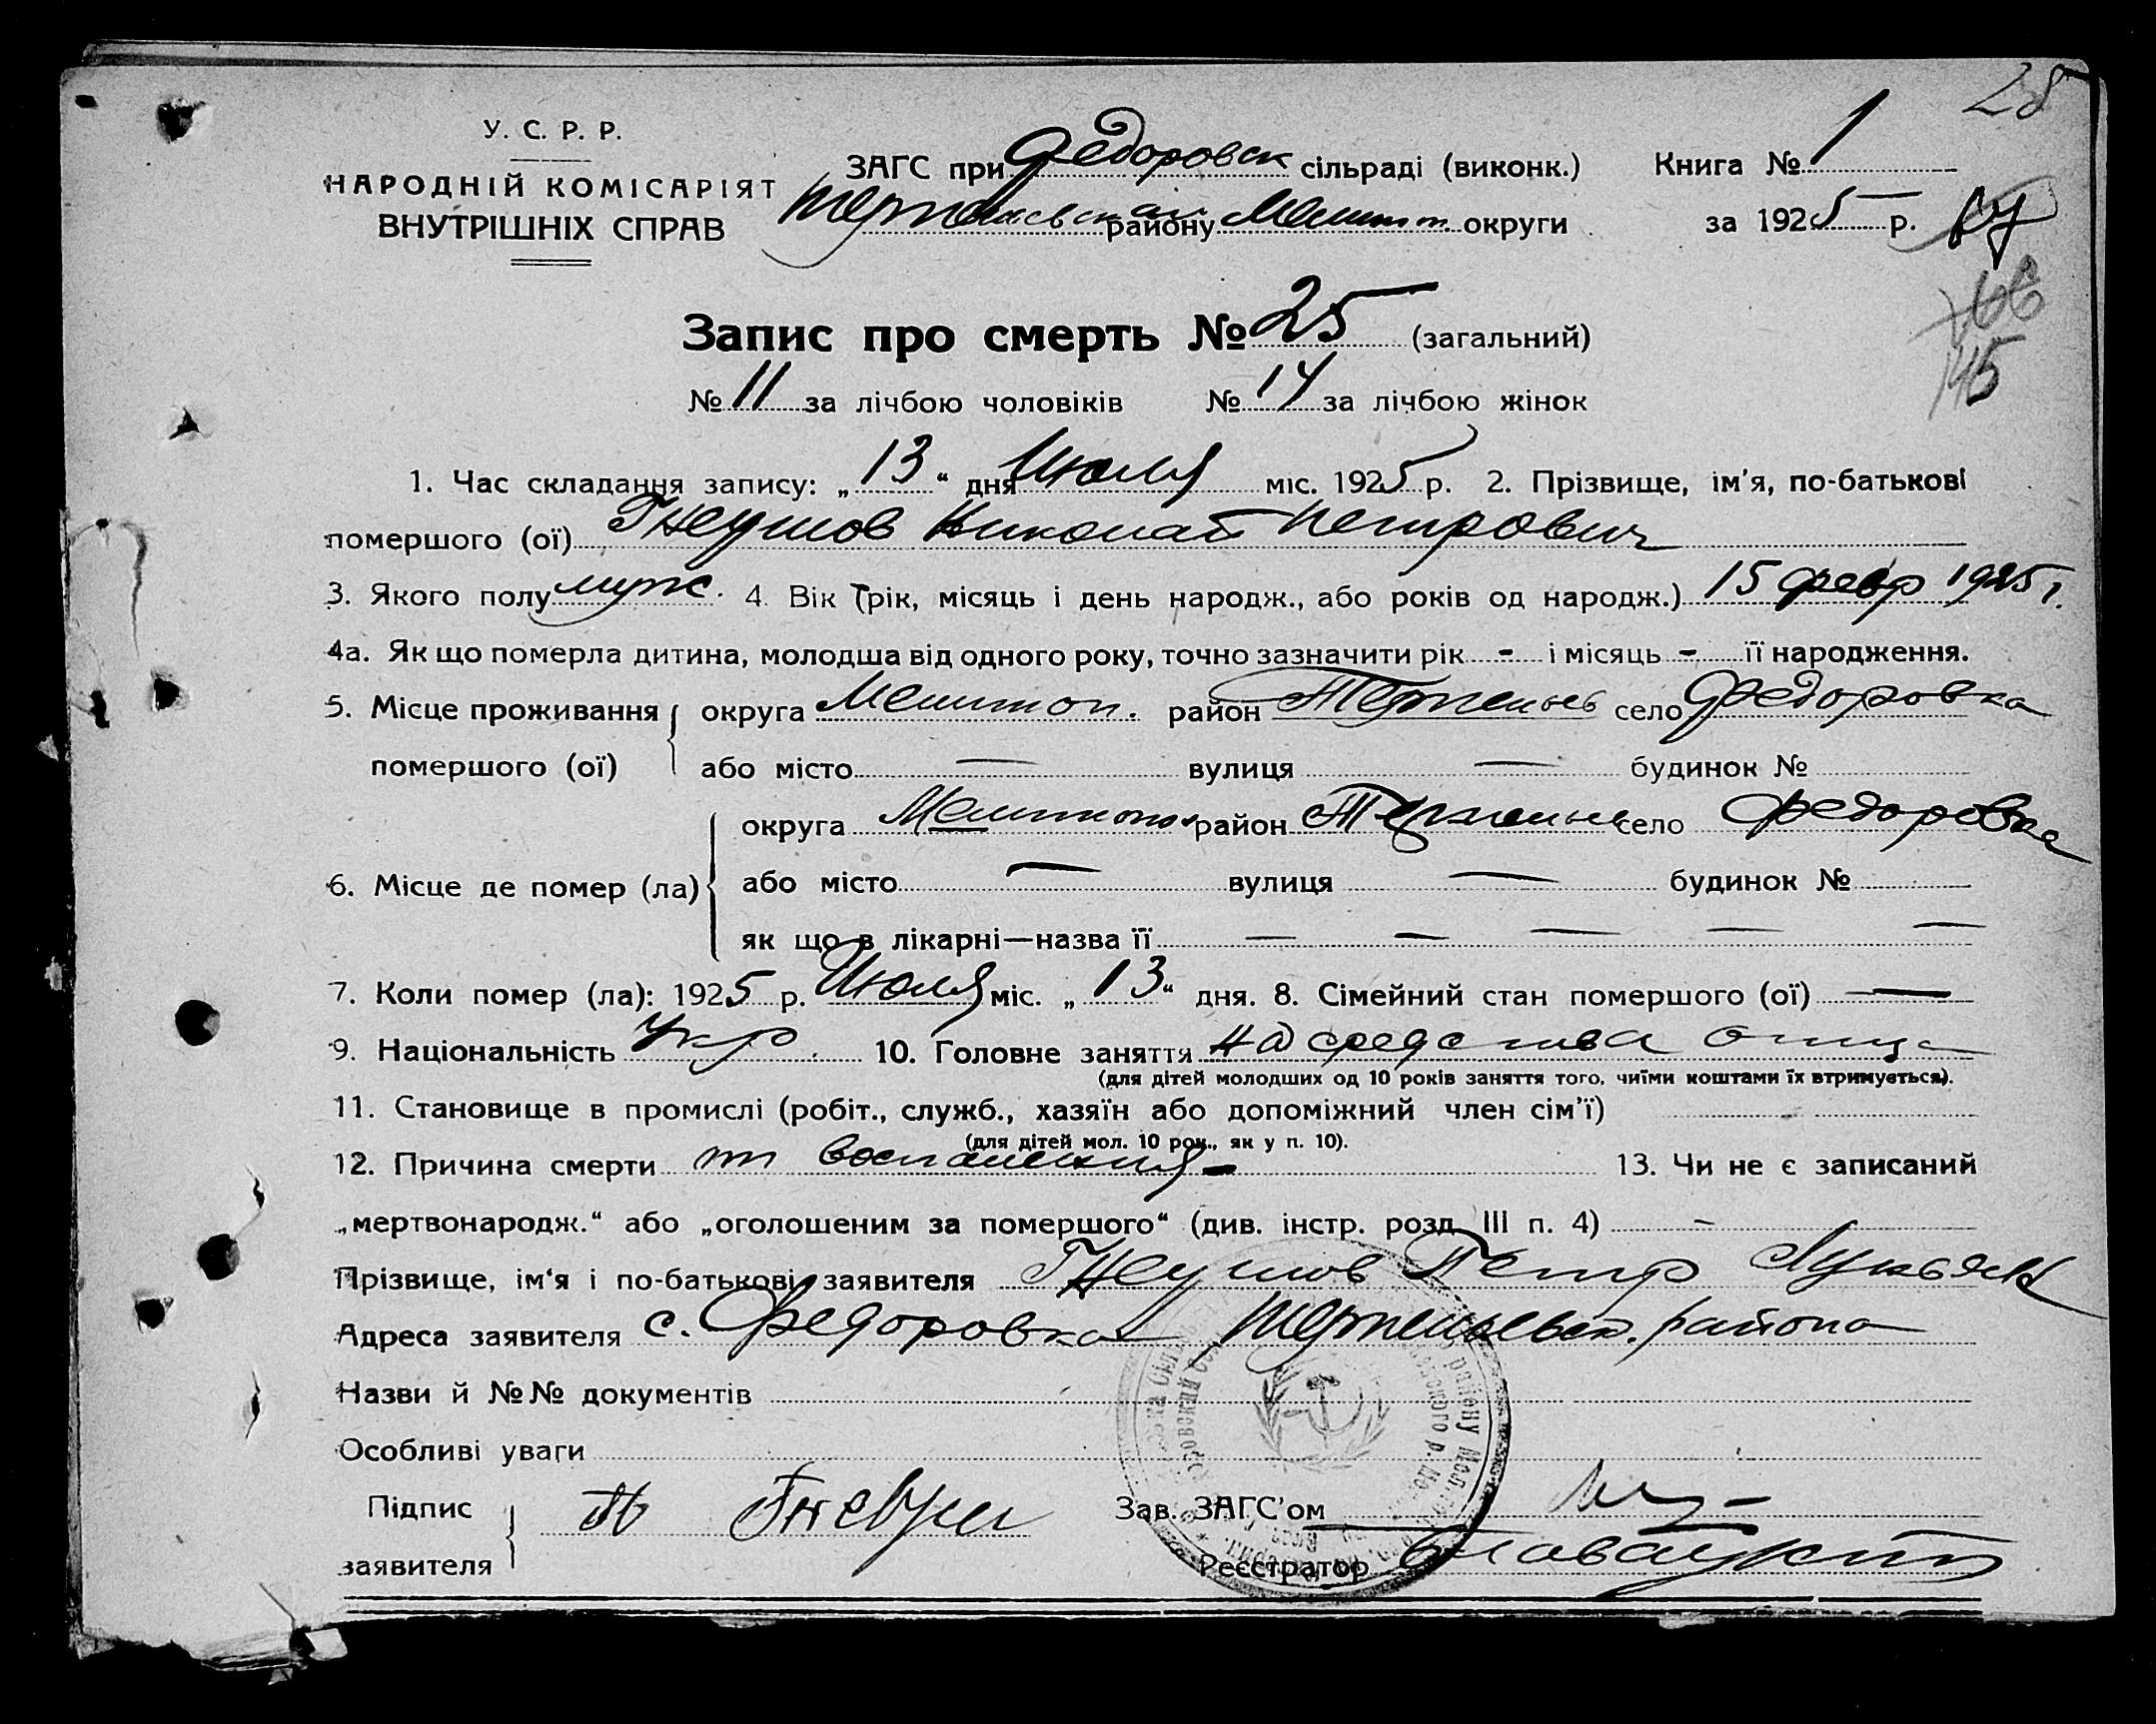 28
У. С. Р. Р.
НАРОДНІЙ КОМІСАРІЯТ
ВНУТРІШНІХ СПРАВ
ЗАГС при Федоровск сільраді (виконк.) Книга № 1
району Мелитоп. округи за 1925 р.
145
Запис про смерть № 25 (загальний)
№ 11 за лічбою чоловіків № 14 за лічбою жінок
1. Час складання запису: „13“ дня Июля міс. 1925 р. 2. Прізвище, ім'я, по-батькові
помершого (ої) Гнеушов Николай Петрович
3. Якого полу муж. 4. Вік (рік, місяць і день народж., або років од народж.) 15 февр 1925 г.
4а. Як що померла дитина, молодша від одного року, точно зазначити рік - і місяць - її народження.
5. Місце проживання округа Мелитоп. район село Федоровка
помершого (ої) або місто — вулиця — будинок №
округа Мелитоп район село Федоровка
6. Місце де помер (ла) або місто — вулиця — будинок №
як що в лікарні—назва її — — — — —
7. Коли помер (ла): 1925 р. Июля міс. „13“ дня. 8. Сімейний стан помершого (ої) —
9. Національність Укр. 10. Головне заняття на средства отца
(для дітей молодших од 10 років заняття того, чиїми коштами їх втримується).
11. Становище в промислі (робіт., служб., хазяїн або допоміжний член сім'ї)
(для дітей мол. 10 рок., як у п. 10).
12. Причина смерти от воспаления - 13. Чи не є записаний
„мертвонародж.“ або „оголошеним за помершого“ (див. інстр. розд. III п. 4) -
Прізвище, ім'я і по-батькові заявителя Гнеушов Петр Лукьян
Адреса заявителя с. Федоровка района
Назви й №№ документів
Особливі уваги
Підпис Зав. ЗАГС'ом
заявителя Реєстратор